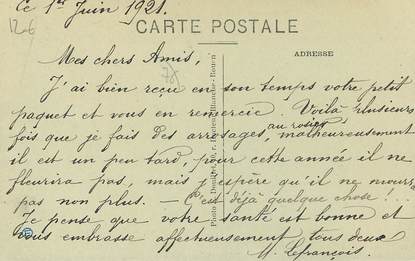 Ce 1er Juin 1921.
CARTE POSTALE
Mes chers Amis,
ADRESSE
J'ai bien reçu en son temps votre petit
paquet et vous en remercie. Voilà plusieurs
fois que je fais des arrosages, au rosier, malheureusement
il est un peu tard, pour cette année il ne
fleurira pas, mais j'espère qu'il ne mourra
pas non plus. — C'est déjà quelque chose!...
Je pense que votre santé est bonne et
vous embrasse affectueusement tous deux
Lefrançois.